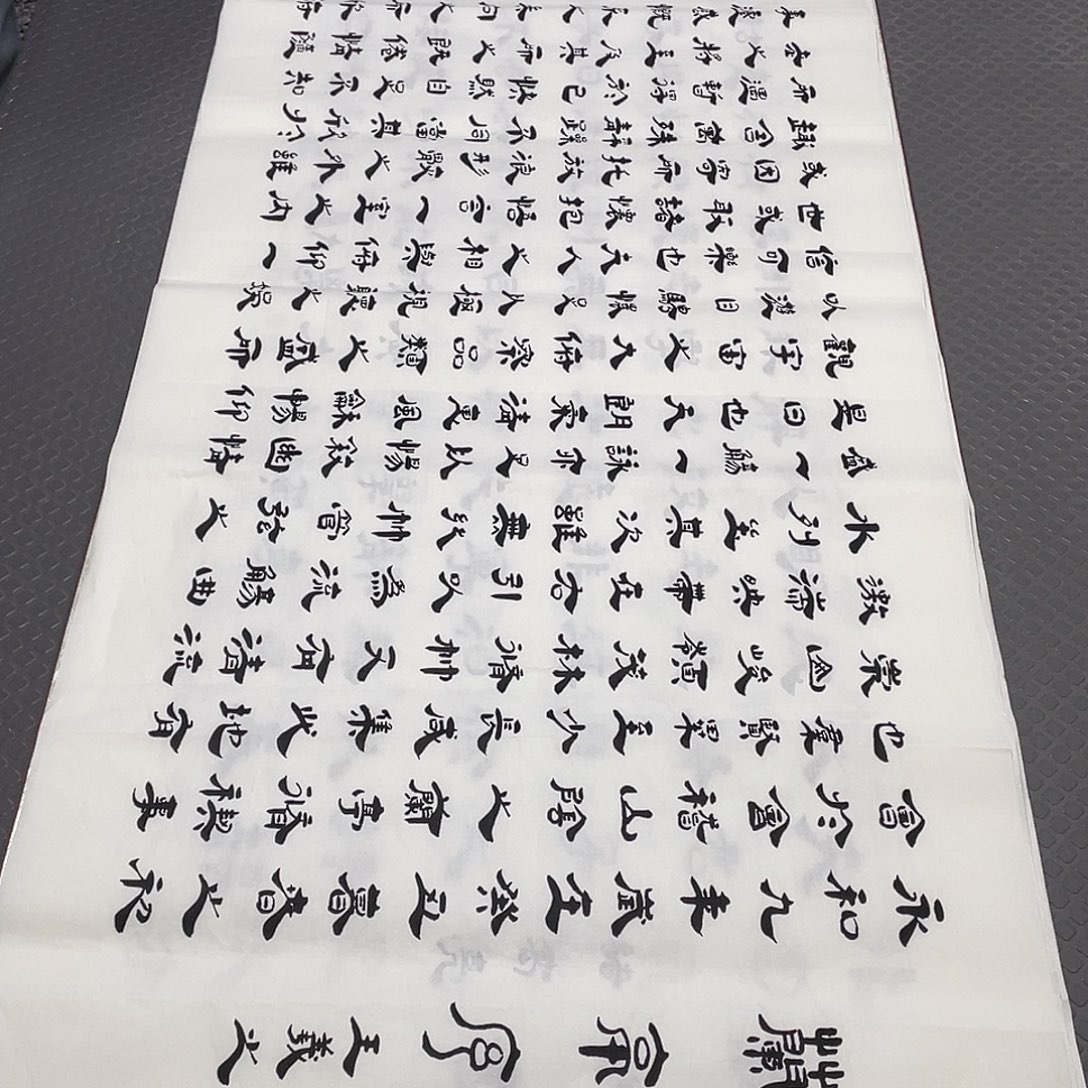 蘭亭序 王羲之
永和九年歲在癸丑暮春之初
會於會稽山陰之蘭亭脩禊事
也羣賢畢至少長咸集此地有
崇山峻領茂林脩竹又有清流
激湍映帶左右引以為流觴曲
水列坐其次雖無絲竹管絃之
盛一觴一詠亦足以暢敘幽情
是日也天朗氣清惠風和暢仰
觀宇宙之大俯察品類之盛所
以遊目騁懷足以極視聽之娛
信可樂也夫人之相與俯仰一
世或取諸懷抱悟言一室之內
或因寄所託放浪形骸之外雖
趣舍萬殊靜躁不同當其欣於
所遇暫得於己快然自足不知
老之將至及其所之既倦情隨
事遷感慨係之矣向之所欣